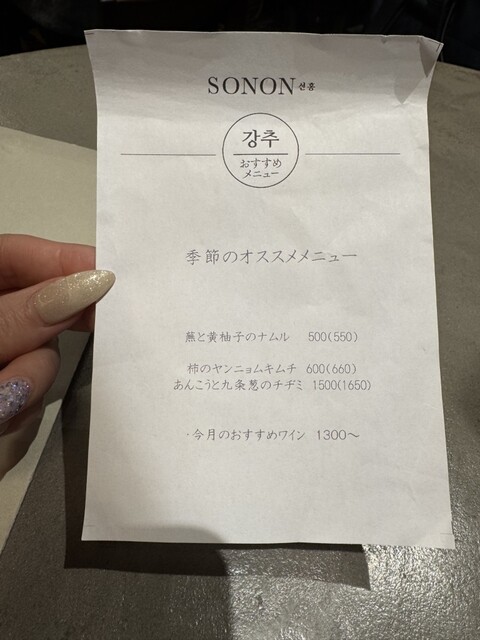 SONON 선홍
강추
おすすめ
メニュー
季節のオススメメニュー
蕪と黄柚子のナムル 500(550)
柿のヤンニョムキムチ 600(660)
あんこうと九条葱のチヂミ 1500(1650)
・今月のおすすめワイン 1300〜